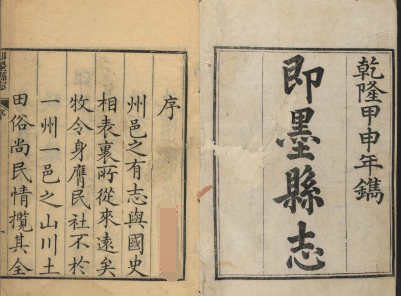 乾隆甲申年鐫
即墨縣志
序
州邑之有志與國史
相表裏所從來遠矣
牧令身膺民社不於
一州一邑之山川土
田俗尚民情攬其全